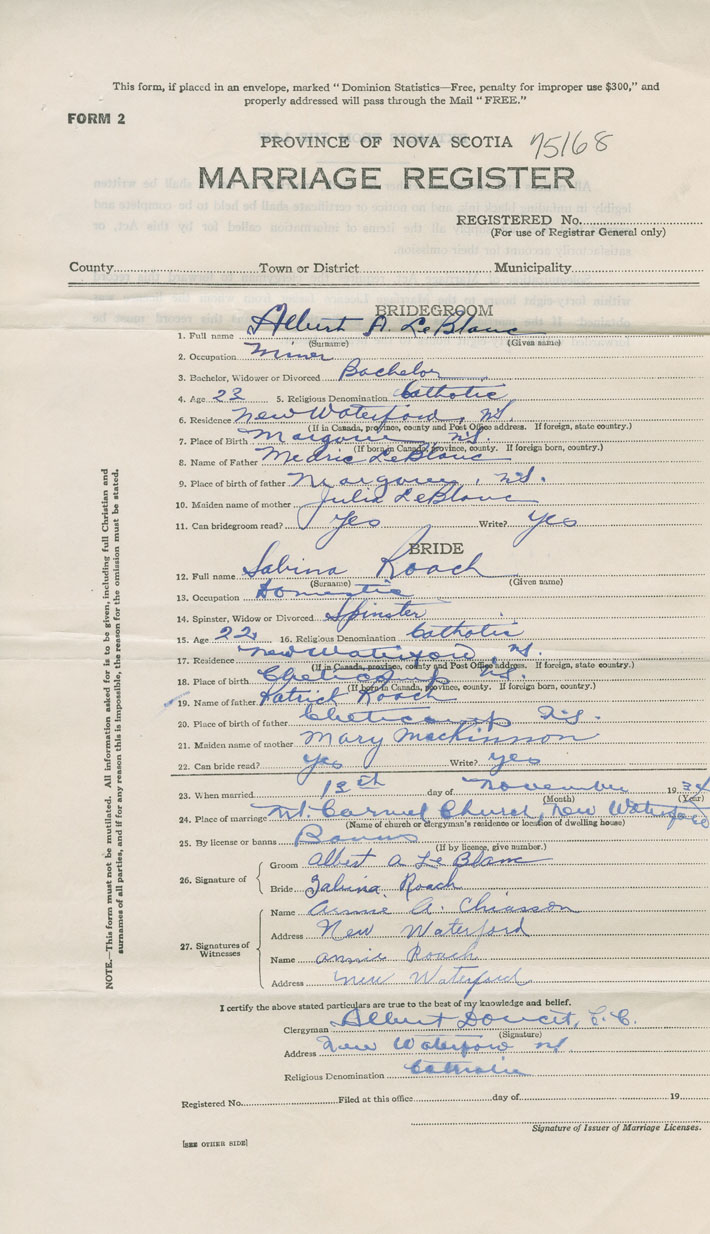 This form, if placed in an envelope, marked "Dominion Statistics—Free, penalty for improper use $300," and
properly addressed will pass through the Mail "FREE."
FORM 2
PROVINCE OF NOVA SCOTIA 75168
MARRIAGE REGISTER
REGISTERED No.
(For use of Registrar General only)
County Town or District Municipality
BRIDEGROOM
1. Full name Albert A. LeBlanc
(Surname) (Given name)
2. Occupation Miner
3. Bachelor, Widower or Divorced Bachelor
4. Age 23 5. Religious Denomination Catholic
6. Residence New Waterford, N.S.
(If in Canada, province, county and Post Office address. If foreign, state country.)
7. Place of Birth Margaree N.S.
(If born in Canada, province, county. If foreign born, country.)
8. Name of Father Medric LeBlanc
9. Place of birth of father Margaree, N.S.
10. Maiden name of mother Julia LeBlanc
11. Can bridegroom read? Yes Write? Yes
BRIDE
12. Full name Sabina Roach
(Surname) (Given name)
13. Occupation Domestic
14. Spinster, Widow or Divorced Spinster
15. Age 22 16. Religious Denomination Catholic
17. Residence New Waterford, N.S.
(If in Canada, province, county and Post Office address. If foreign, state country.)
18. Place of birth Cheticamp N.S.
(If born in Canada, province, county. If foreign born, country.)
19. Name of father Patrick Roach
20. Place of birth of father Cheticamp N.S.
21. Maiden name of mother Mary MacKinnon
22. Can bride read? yes Write? yes
23. When married 13th day of November 1934
(Month) (Year)
24. Place of marriage Mt. Carmel Church, New Waterford
(Name of church or clergyman's residence or location of dwelling house)
25. By license or banns Banns
(If by licence, give number.)
26. Signature of
Groom Albert A LeBlanc
Bride Sabina Roach
27. Signatures of Witnesses
Name A. Chiasson
Address New Waterford
Name Annie Roach
Address New Waterford
I certify the above stated particulars are true to the best of my knowledge and belief.
Clergyman Albert Doucet, C.C.
(Signature)
Address New Waterford NS
Religious Denomination Catholic
Registered No. Filed at this office day of 19
Signature of Issuer of Marriage Licenses.
[SEE OTHER SIDE]
NOTE.—This form must not be mutilated. All information asked for is to be given, including full Christian and
surnames of all parties, and if for any reason this is impossible, the reason for the omission must be stated.